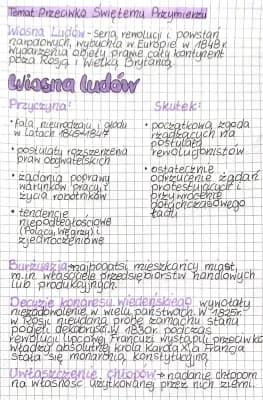 Temat: Przeciwko Świętemu Przymierzu
Wiosna Ludów - seria rewolucji i powstań
narodowych, wybuchła w Europie w 1848 r.
wydarzenia objęły prawie cały kontynent
poza Rosją i Wielką Brytanią.
Wiosna ludów
Przyczyna:
• fala nieurodzaju i głodu
w latach 1845-1847
• postulaty rozszerzenia
praw obywatelskich
• żądania poprawy
warunków pracy i
życia robotników
• tendencje
niepodległościowe
(Polacy, Węgrzy) i
zjednoczeniowe
Skutek:
• początkowa zgoda
rządzących na
postulaty
rewolucjonistów
• ostatecznie
odrzucenie żądań
protestujących i
przywrócenie
dotychczasowego
ładu
Burżuazja → najbogatsi mieszkańcy miast,
m.in. właściciele przedsiębiorstw handlowych
lub produkcyjnych.
Decyzje kongresu wiedeńskiego wywołały
niezadowolenie w wielu państwach. W 1825r.
w Rosji nieudaną próbę zamachu stanu
podjęli dekabryści. W 1830r. podczas
rewolucji lipcowej Francuzi wystąpili przeciwko
władzy absolutnej króla Karola X i a Francja
stała się monarchią konstytucyjną.
Uwłaszczenie chłopów → nadanie chłopom
na własność użytkowanej przez nich ziemi.